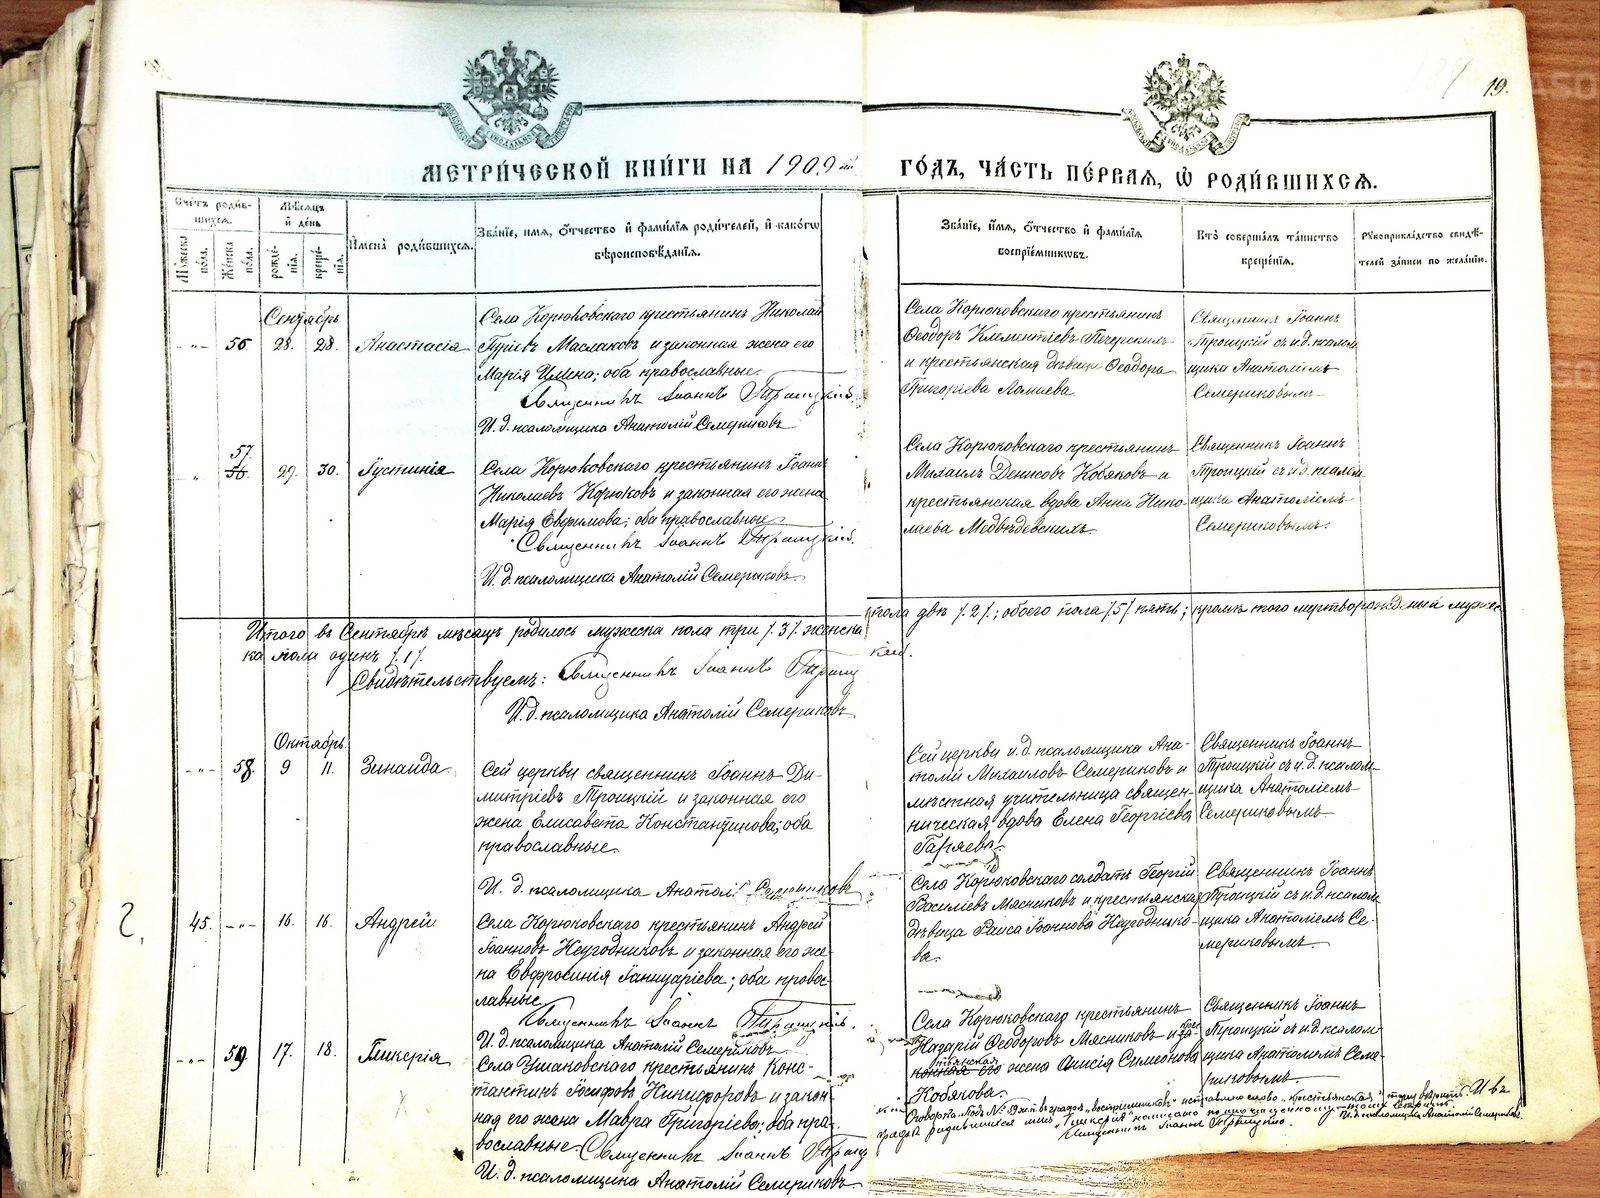 19.
МЕТРИ́ЧЕСКОЙ КНИ́ГИ НА 1909 ый
ГО́ДЪ, ЧА́СТЬ ПЕ́РВАЯ, Ѽ РОДИ́ВШИХСѦ.
Сче́тъ роди́в-
шихсѧ.
Мѣ́сяцъ
и де́нь
Му́жеска по́ла.
Же́нска по́ла.
рожде́-
нїѧ.
креще́-
нїѧ.
И́мена роди́вшихсѧ.
Зва́нїе, и́мя, о́тчество и фами́лїѧ роди́телей, и како́гѡ
вѣроисповѣ́данїѧ.
Зва́нїе, и́мя, о́тчество и фами́лїѧ
воспрїе́мникѡвъ.
Кто̀ соверша́лъ та́инство
креще́нїѧ.
Рукоприкла́дство свидѣ́-
телей за́писи по жела́нїю.
Сентябрь
56. 28. 28. Анастасія
Села Корюковскаго крестьянинъ Николай
Гуріевъ Маслаковъ и законная жена его
Марія; оба православные.
Священникъ Іоаннъ Троицкій.
И. д. псаломщика Анатолій Семериковъ
Села Корюковскаго крестьянинъ
Ѳеодоръ Климентіевъ Печерскихъ
и крестьянская дѣвица Ѳеодора
Григоріева
Священникъ Іоаннъ
Троицкій съ и.д. псалом
щика Анатоліемъ
Семериковымъ
57.
56. 29. 30. Іустинія
Села Корюковскаго крестьянинъ Іоаннъ
Николаевъ Корюковъ и законная его жена
Марія Евфимова; оба православные
Священникъ Іоаннъ Троицкій.
И. д. псаломщика Анатолій Семериковъ
Села Корюковскаго крестьянинъ
Михаилъ Денисовъ Кобяковъ и
крестьянская вдова Анна Нико-
лаева Медвѣдевскихъ.
Священникъ Іоаннъ
Троицкій съ и.д. псалом
щика Анатоліемъ
Семериковымъ.
Итого въ Сентябрѣ мѣсяцѣ родилось мужеска пола три /3/ женска
пола двѣ /2/; обоего пола /5/ пять; кромѣ того мертворожденый мужес
ка пола одинъ /1/.
Свидѣтельствуемъ: Священникъ Іоаннъ Троиц
И. д. псаломщика Анатолій Семериковъ
Октябрь
58. 9 11. Зинаида
Сей церкви священникъ Іоаннъ Ди-
митріевъ Троицкій и законная его
жена Елисавета Константинова; оба
православные.
И. д. псаломщика Анатолій Семериковъ
Сей церкви и.д. псаломщика Ана-
толій Михаиловъ Семериковъ и
мѣстная учительница священ-
ническая вдова Елена Георгіева
Гаряева.
Священникъ Іоаннъ
Троицкій съ и.д. псалом-
щика Анатоліемъ
Семериковымъ
2.
45. 16. 16. Андрей
Села Корюковскаго крестьянинъ Андрей
Іоанновъ Неугодниковъ и законная его же-
на Евфросинія Іаннуаріева; оба право-
славные
Священникъ Іоаннъ Троицкій.
И. д. псаломщика Анатолій Семериковъ
Село Корюковскаго солдатъ Георгій
Василіевъ Мясниковъ и крестьянская
дѣвица Раиса Іоаннова Неугоднико-
ва.
Священникъ Іоаннъ
Троицкій съ и.д. псалом
щика Анатоліемъ Се-
мериковымъ
59. 17. 18. Гликерія
Села Ушаковскаго крестьянинъ Конс-
тантинъ Іосифовъ Никифоровъ и закон
ная его жена Мавра Григоріева; оба пра-
вославные. Священникъ Іоаннъ Троиц
И. д. псаломщика Анатолій Семериковъ
Села Корюковскаго крестьянинъ
Назарій Ѳеодоровъ Мясниковъ и
жена Анисія Симеонова
Кобякова.
Священникъ Іоаннъ
Троицкій съ и.д. псалом
щика Анатоліемъ Семе
риковымъ.
"воспріемниковъ" исправлено слово "крестьянская"
Священникъ Іоаннъ Троицкій
И.д. псаломщика Анатолій Семериковъ